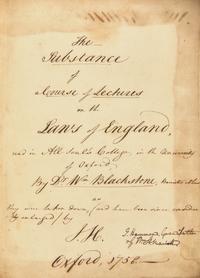 The
Substance
of
a Course of Lectures
on the
Laws of England,
read in All Soul's College, in the University
of Oxford,
By Dr. Wm. Blackstone,
as
they were taken down, and have been since
enlarged by
J. H.
Oxford, 1756.